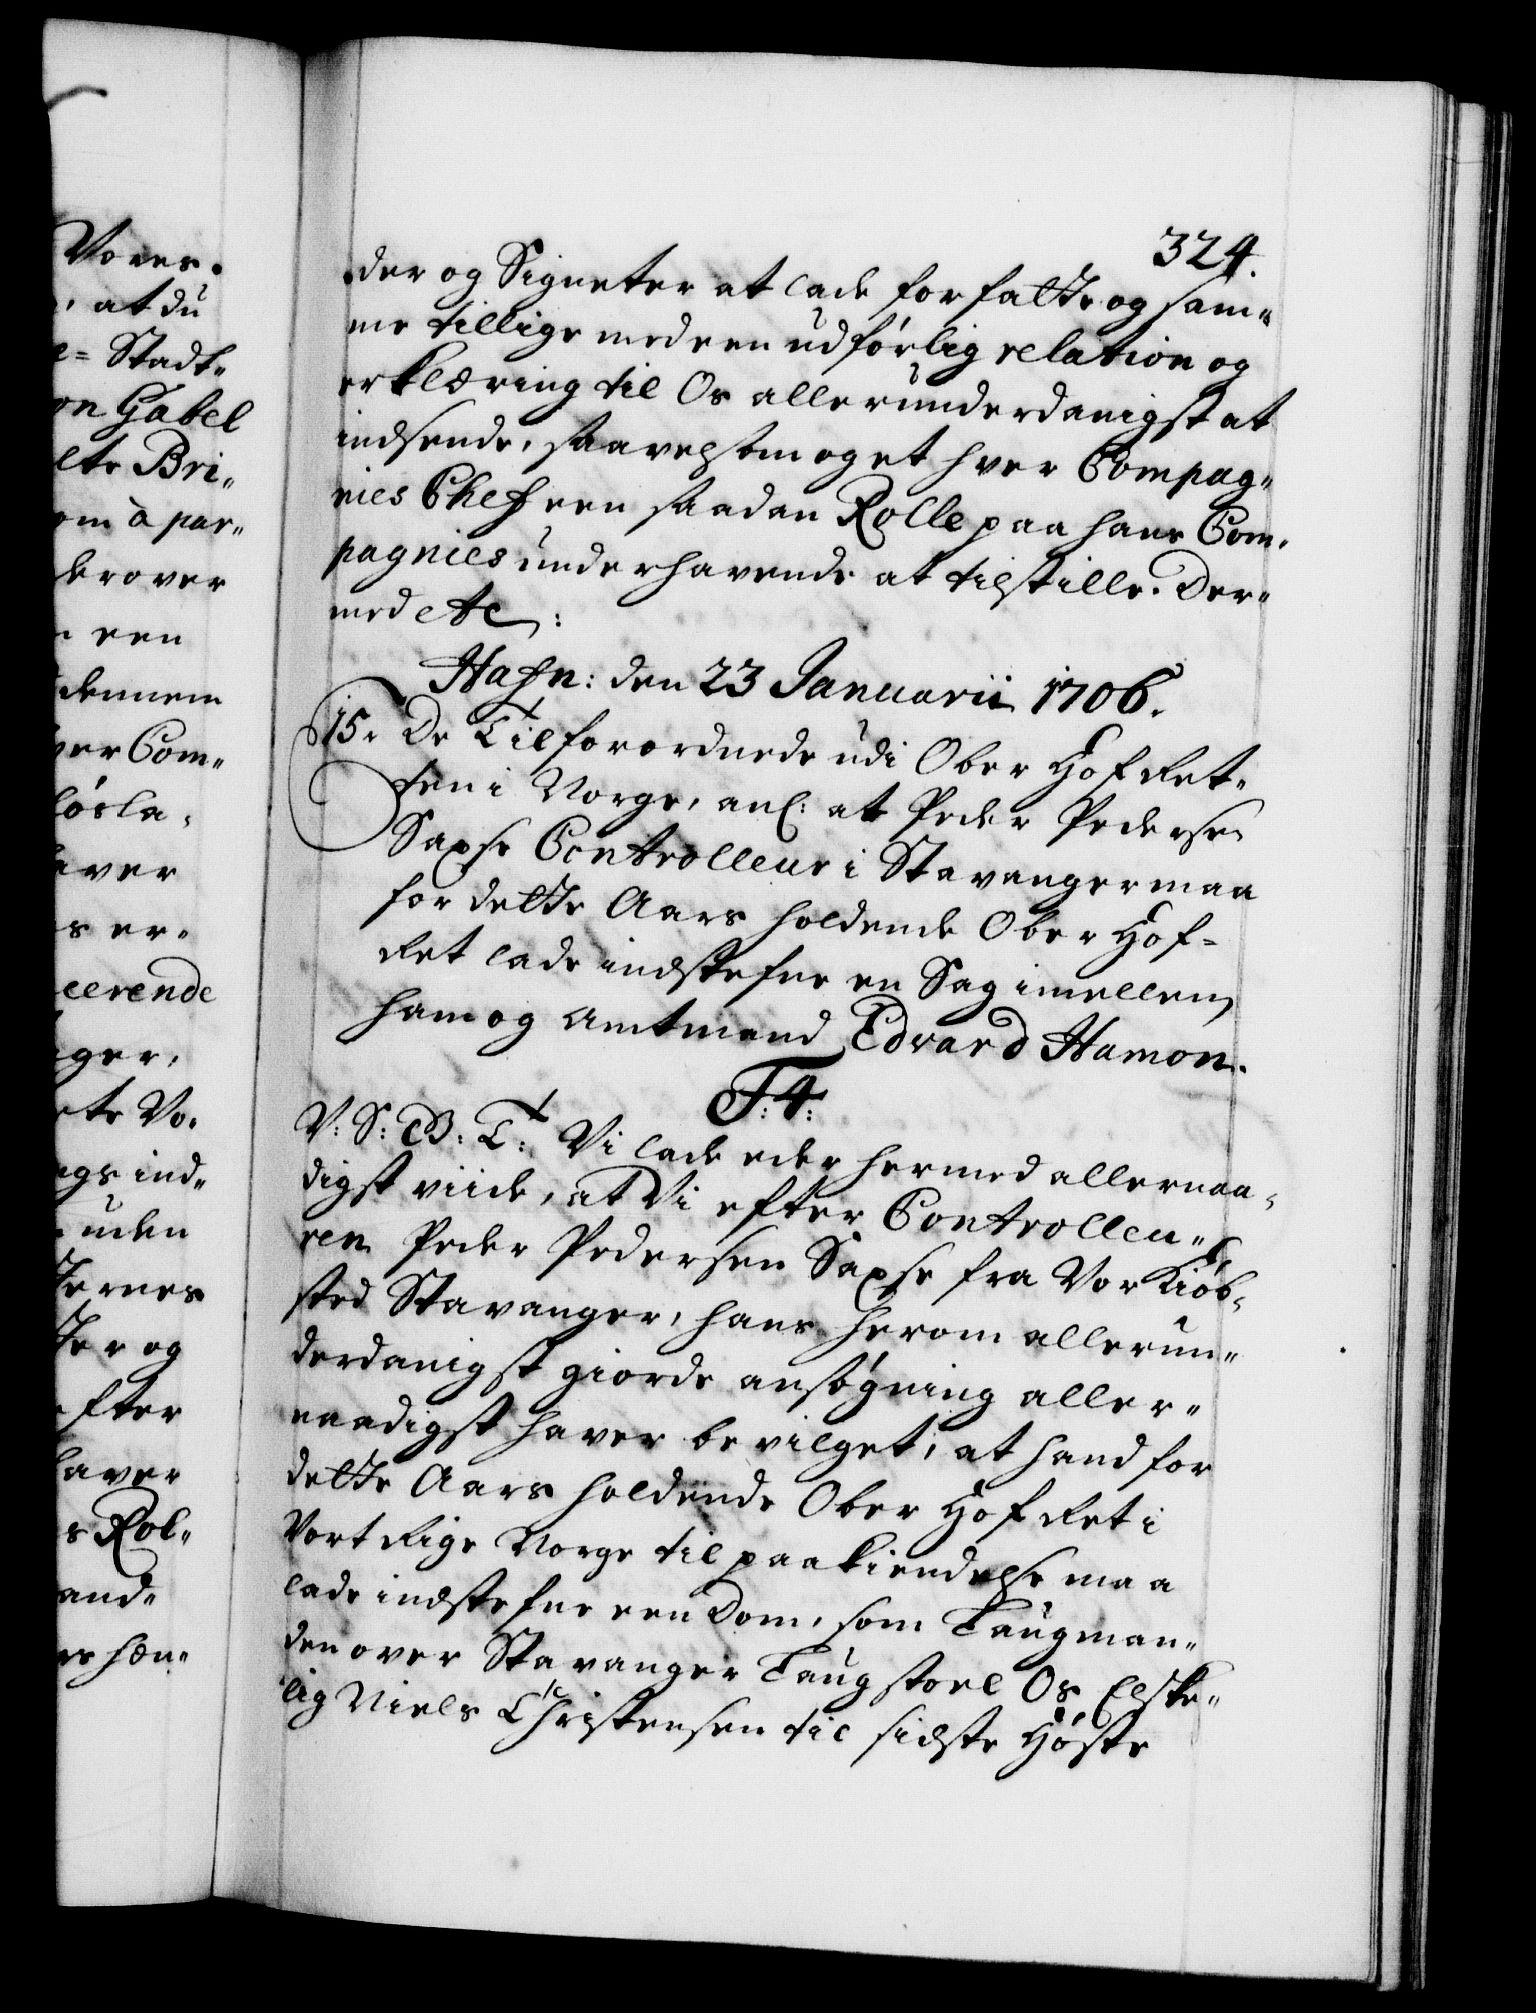 Vores.
, at du
e= Stadt=
on Gabel
lte Bri=
om à par=
derover
een
dennem
ver Com=
lösla,
aver
s er=
cerende
ger,
ete Vo,
ags ind=
uden
ernes
ter og
efter
haver
s Rol=
and=
es hæn=
324.
der og Signeter at lade forfatte og sam=
me tillige med een udförlig relation og
erklæring til Os allerunderdanigst at
indsende, saavelsom og et hver Compag=
nies Chef een saadan Rolle paa hans Com,
pagnies underhavende at tilstille. Der=
med etc:
Hafn: den 23 Januarii 1706.
15. De Tilforordnede udi Ober Hof Ret=
ten i Norge, anl: at Peder Pedersen
Saxse Controlleur i Stavanger maa
for dette Aars holdende Ober Hof=
Ret lade indstefne en Sag imellem
ham og Amtmand Edvard Hamon.
F: 4:
V: S: G: T: Vi lade eder hermed allernaa,
digst viide, at Vi efter Controlleu=
ren Peder Pedersen Saxse fra Vor Kiöb,
sted Stavanger, hans herom allerun=
derdanigst giorde ansögning aller=
naadigst haver bevilget, at hand for
dette Aars holdende Ober Hof Ret i
Vort Rige Norge til paakiendelse maa
lade indstefne een Dom, som Laugman=
den over Stavanger Laugstoel Os Elske=
lig Niels Christensen til sidste Höste